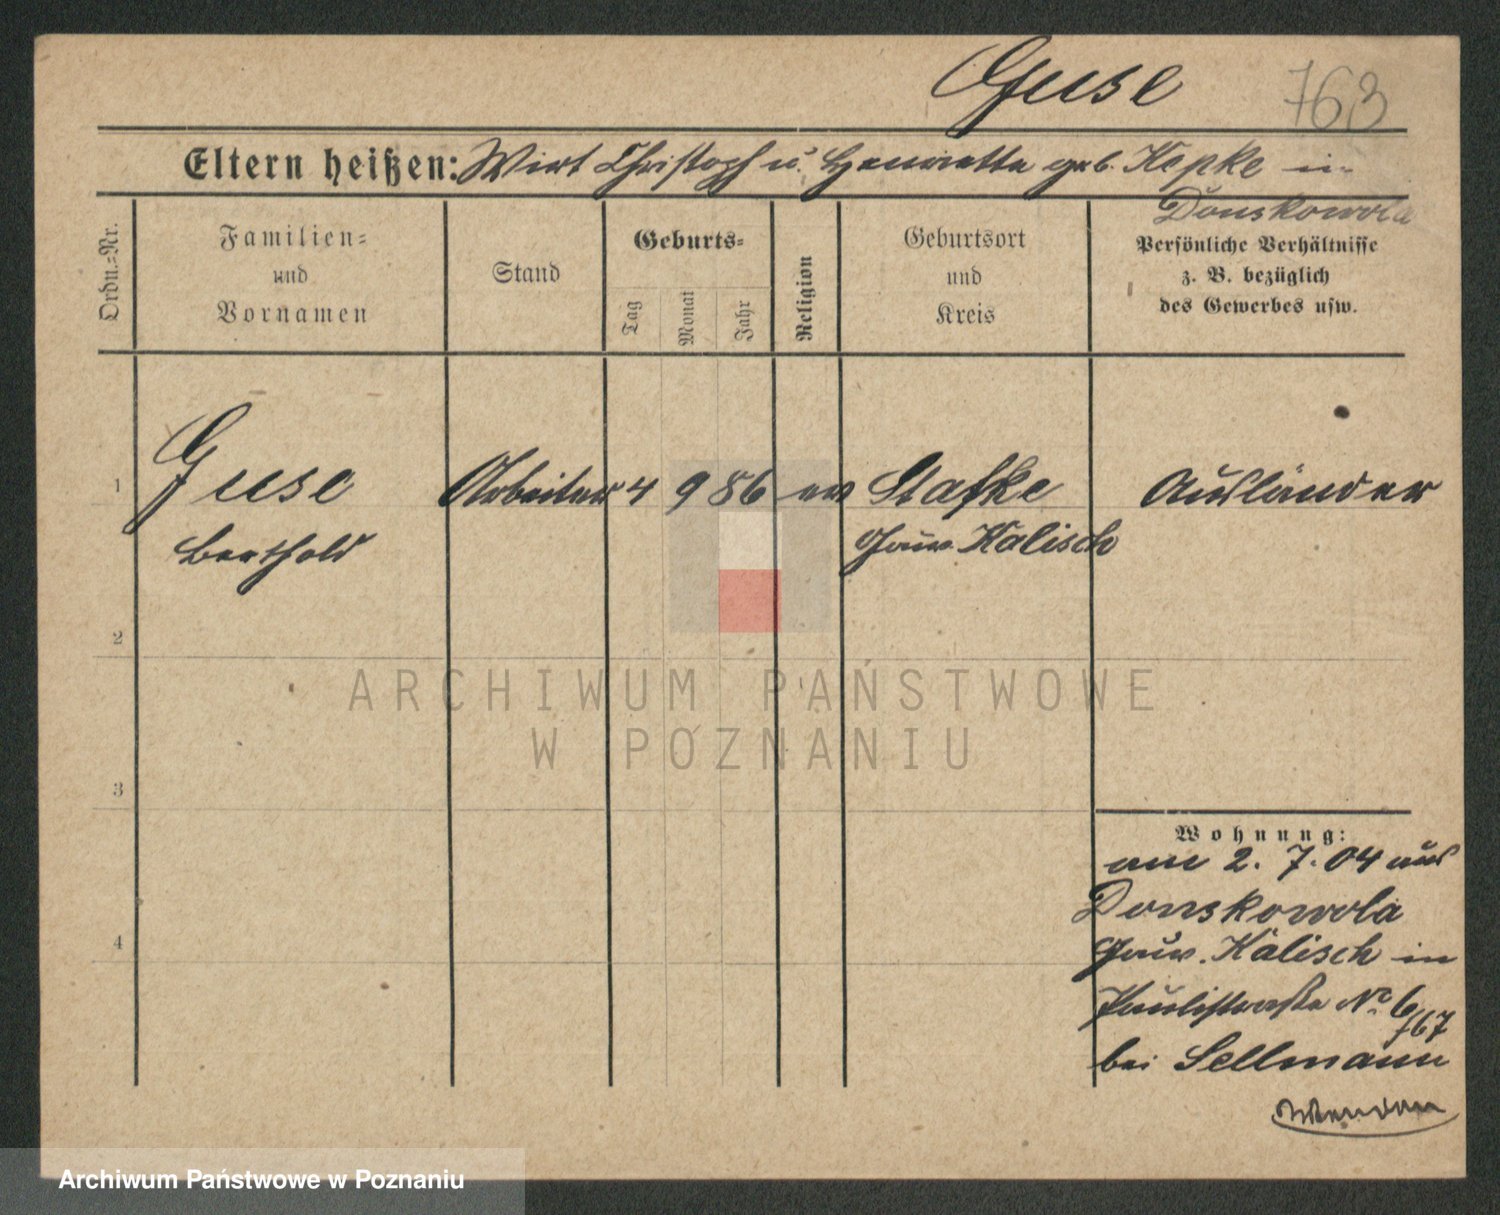 Guse 763
Eltern heißen: Wirt Christoph u. Henriette geb. Kepke in
Donskowola
Ordn.=Nr.
Familien=
und
Vornamen
Stand
Geburts=
Tag
Monat
Jahr
Religion
Geburtsort
und
Kreis
Persönliche Verhältnisse
z. B. bezüglich
des Gewerbes usw.
1 Guse Arbeiter 4 9 86 ev Stafke Ausländer
Berthold Gouv. Kalisch
2
ARCHIWUM PAŃSTWOWE
W POZNANIU
3
Wohnung:
am 2. 7. 04 aus
Donskowola
4
Gouv. Kalisch in
Paulistrasse No. 6
767
bei Sellmann
Archiwum Państwowe w Poznaniu